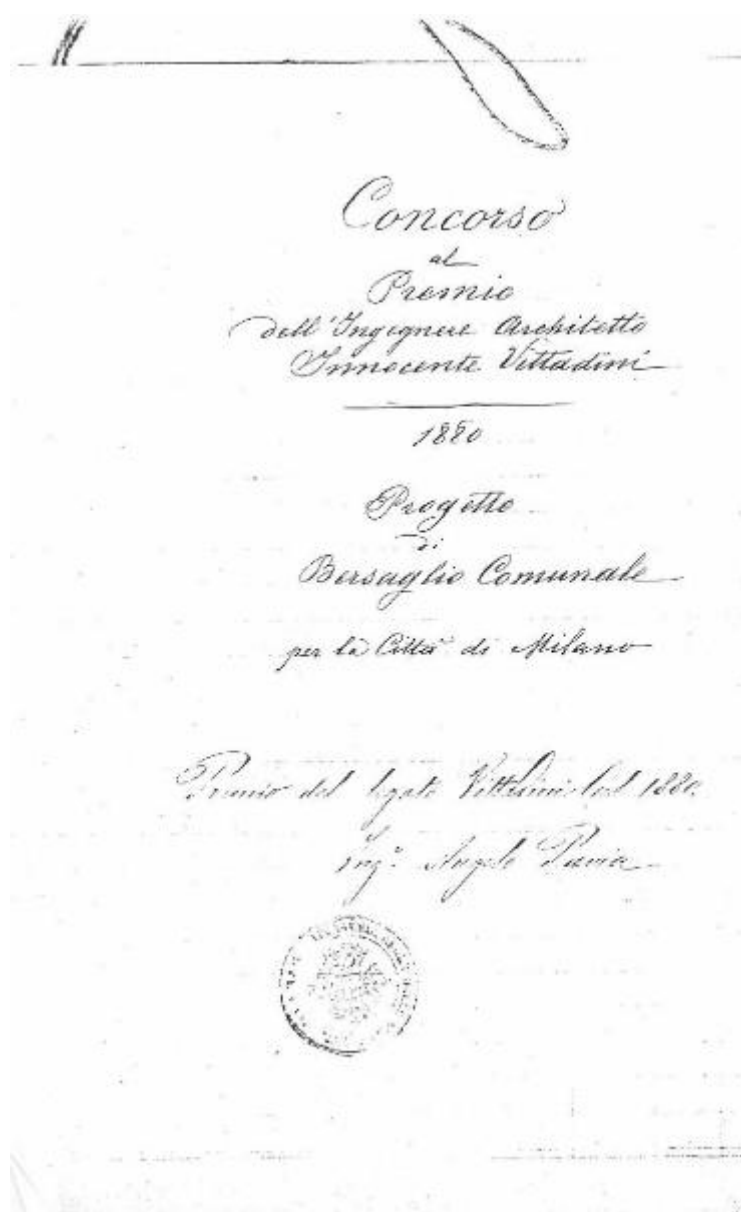 Concorso
al
Premio
dell'Ingegnere Architetto
Innocente Vittadini
1880
Progetto
di
Bersaglio Comunale
per la Città di Milano
Premio del legato Vittadini del 1880.
Ing.e Angelo Pavia